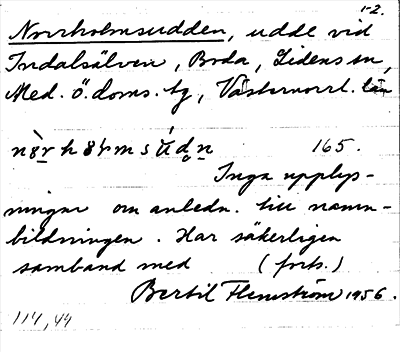 1-2.
Norrholmsudden, udde vid
Indalsälven, Boda, Lidens sn,
Med. ö. doms. tg, Västernorrl. län
165.
Inga upplys-
ningar om anledn. till namn-
bildningen. Har säkerligen
samband med (forts.)
Bertil Flemström 1956.
114,44